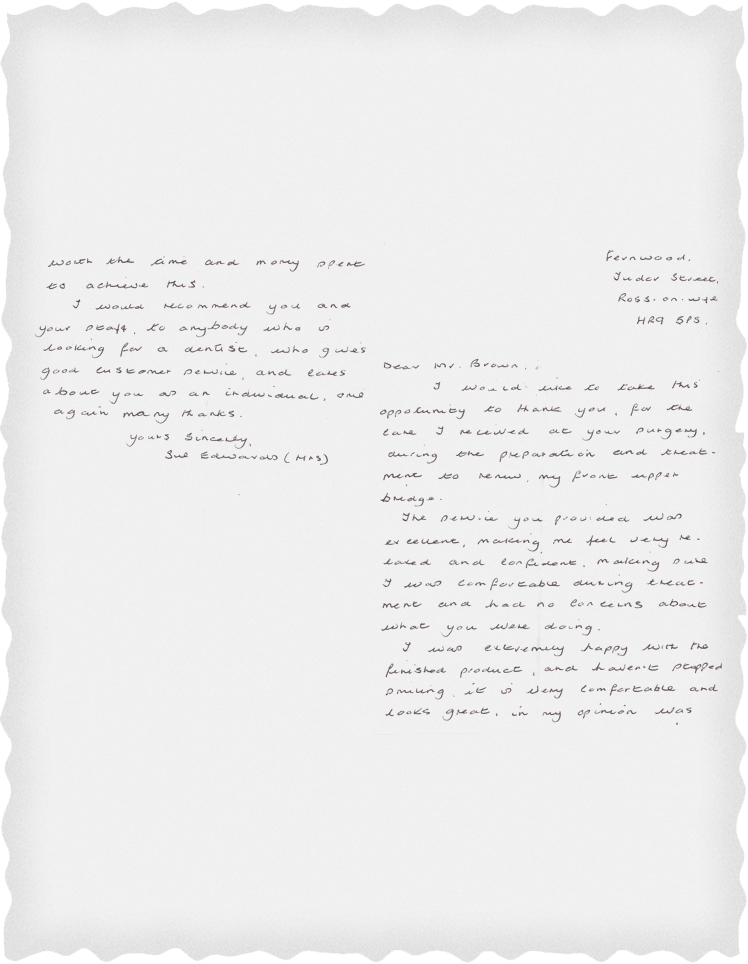 Fernwood.
Tudor Street,
Ross.on.wye
HR9 5PS.
Dear Mr. Brown..
I would like to take this
oppotunity to thank you, for the
care I received at your surgery,
during the preparation and treat-
ment to renew, my front upper
bridge.
The service you provided was
excellent, making me feel very re-
laxed and confident, making sure
I was comfortable during treat-
ment and had no concerns about
what you were doing.
I was extremely happy with the
finished product, and haven't stopped
smiling, it is very comfortable and
looks great, in my opinion was
worth the time and money spent
to achieve this.
I would recommend you and
your staff, to anybody who is
looking for a dentist, who gives
good customer service, and cares
about you as an individual, once
again many thanks.
yours Sincerely,
Sue Edwards (MRS)